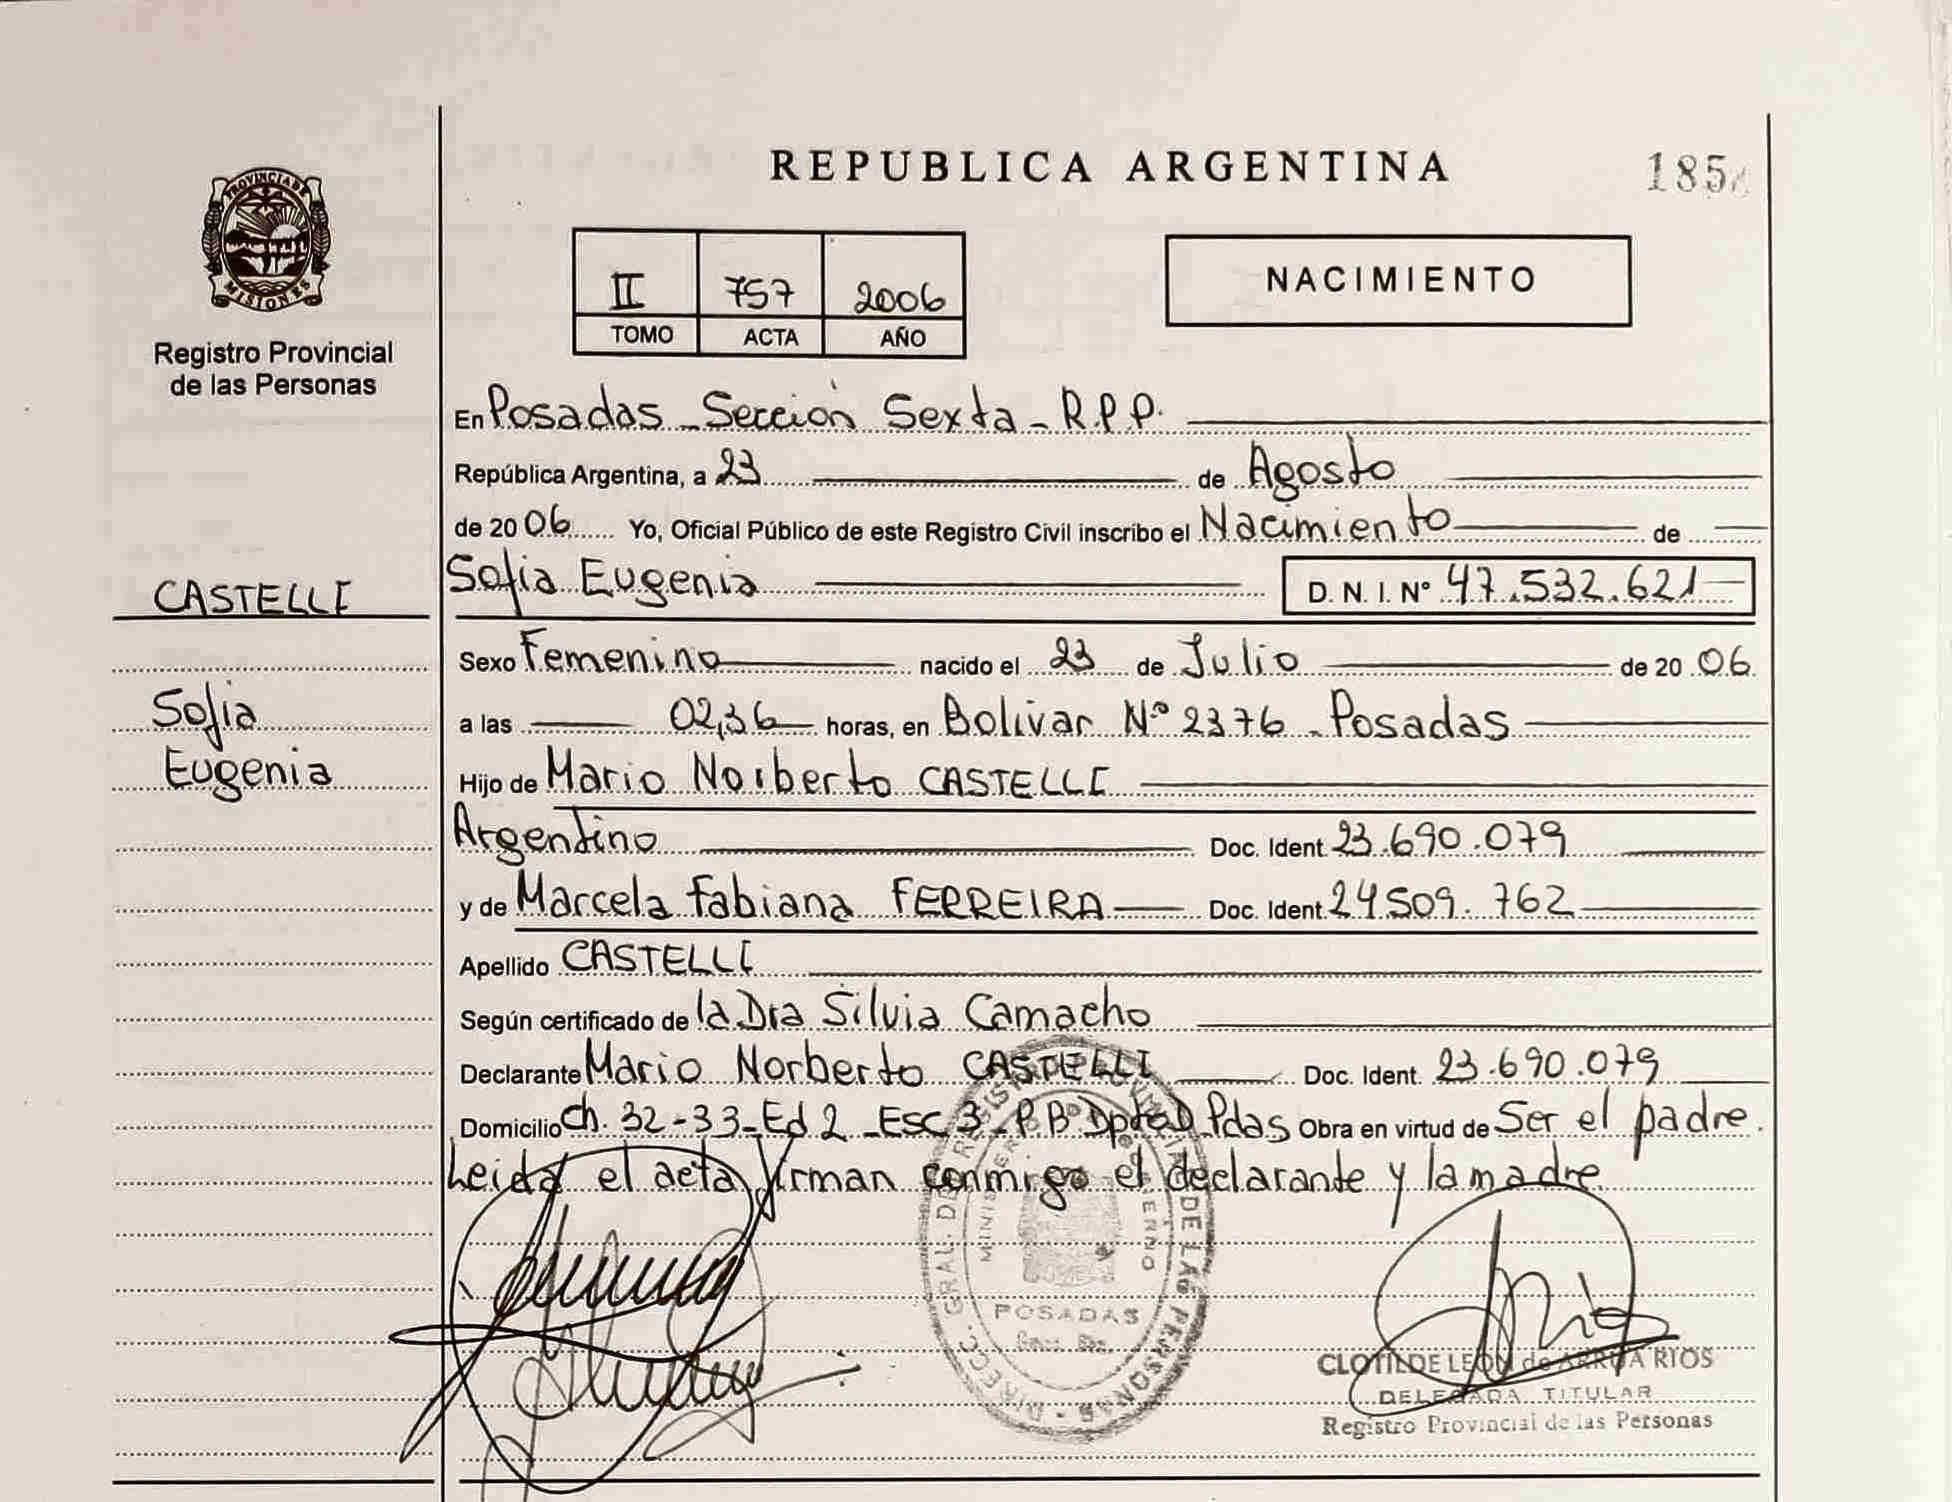 REPUBLICA ARGENTINA
185
PROVINCIA DE
MISIONES
Registro Provincial
de las Personas
II 757 2006
TOMO ACTA AÑO
NACIMIENTO
En Posadas - Sección Sexta - R.P.P.
República Argentina, a 23 de Agosto
de 2006 Yo, Oficial Público de este Registro Civil inscribo el Nacimiento de
CASTELLI
Sofia Eugenia D. N. I. Nº 47.532.621
Sexo Femenino nacido el 23 de Julio de 2006
Sofia
a las 02,36 horas, en Bolivar Nº 2376 - Posadas
Eugenia
Hijo de Mario Norberto CASTELLI
Argentino Doc. Ident. 23.690.079
y de Marcela Fabiana FERREIRA Doc. Ident. 24.509.762
Apellido CASTELLI
Según certificado de la Dra Silvia Camacho
Declarante Mario Norberto CASTELLI Doc. Ident. 23.690.079
Domicilio Ch. 32-33-Ed 2 -Esc 3 - P.B. Dpto D. Pdas Obra en virtud de Ser el padre.
Leida el acta firman conmigo el declarante y la madre
DIRECC. GRAL. DE REGISTRO DE LAS PERSONAS
POSADAS
CLOTILDE LEON de ARRUA RIOS
DELEGADA TITULAR
Registro Provincial de las Personas